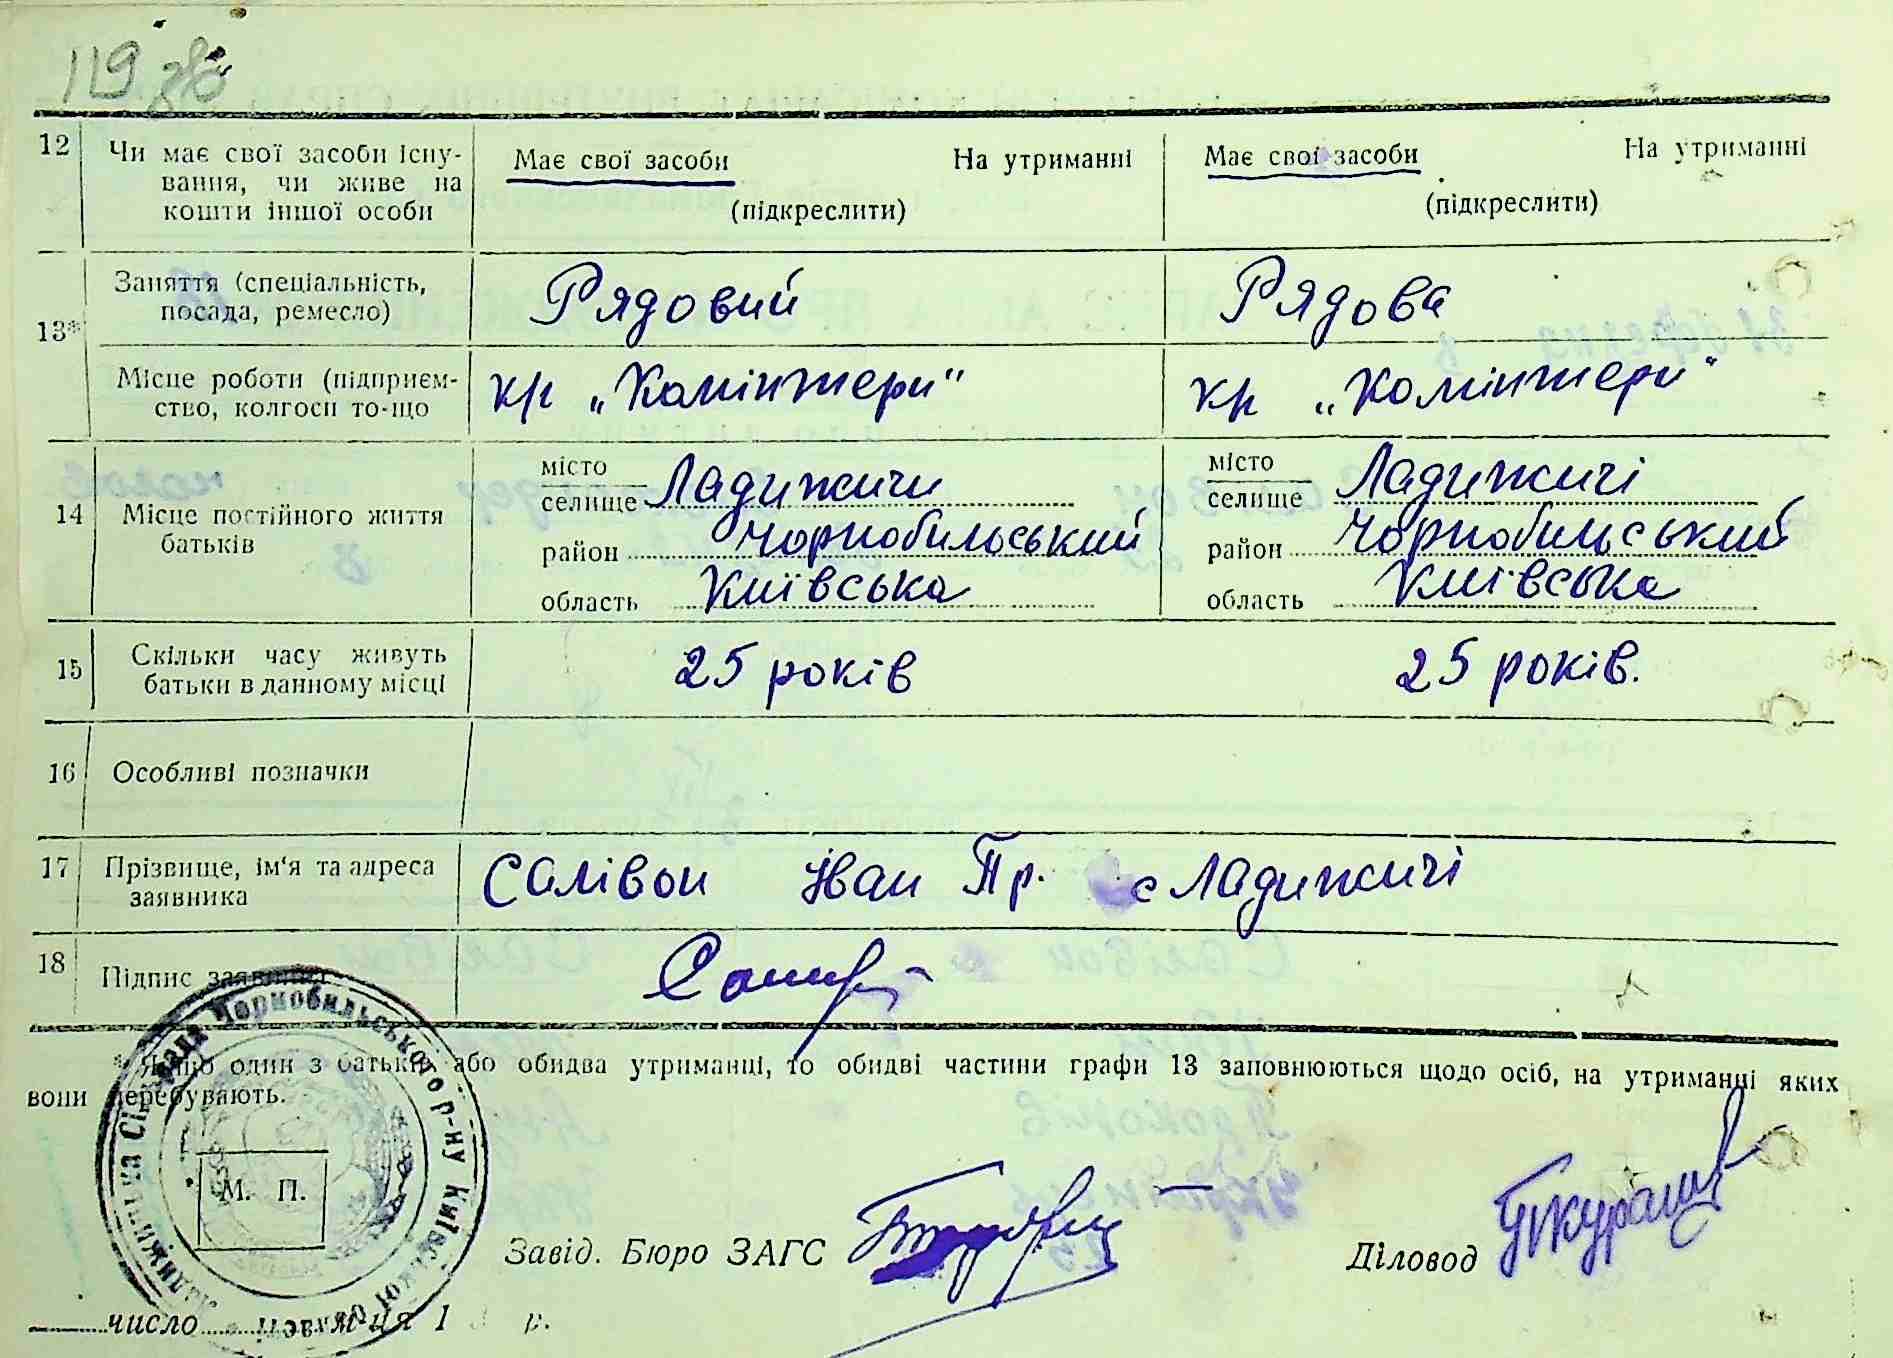 119 зв
12 Чи має свої засоби існу-
вання, чи живе на
кошти іншої особи
Має свої засоби На утриманні
(підкреслити)
Має свої засоби На утриманні
(підкреслити)
13* Заняття (спеціальність,
посада, ремесло)
Рядовий
Рядова
Місце роботи (підприєм-
ство, колгосп то-що
кл „Комінтерн"
кл „Комінтерн"
14 Місце постійного життя
батьків
місто
селище Ладижичи
район Чорнобильоський
область Київська
місто
селище Ладижичі
район Чорнобильський
область Київська
15 Скільки часу живуть
батьки в данному місці
25 років
25 років.
16 Особливі позначки
17 Прізвище, ім'я та адреса
заявника
Салівон Іван Пр. с Ладижичі
18 Підпис заявника
* Якщо один з батьків або обидва утриманці, то обидві частини графи 13 заповнюються щодо осіб, на утриманні яких
вони перебувають.
Ладижицька Сіл. Рада Чорнобильського р-ну Київської області
М. П.
Завід. Бюро ЗАГС
Діловод
число м-ця 1 р.